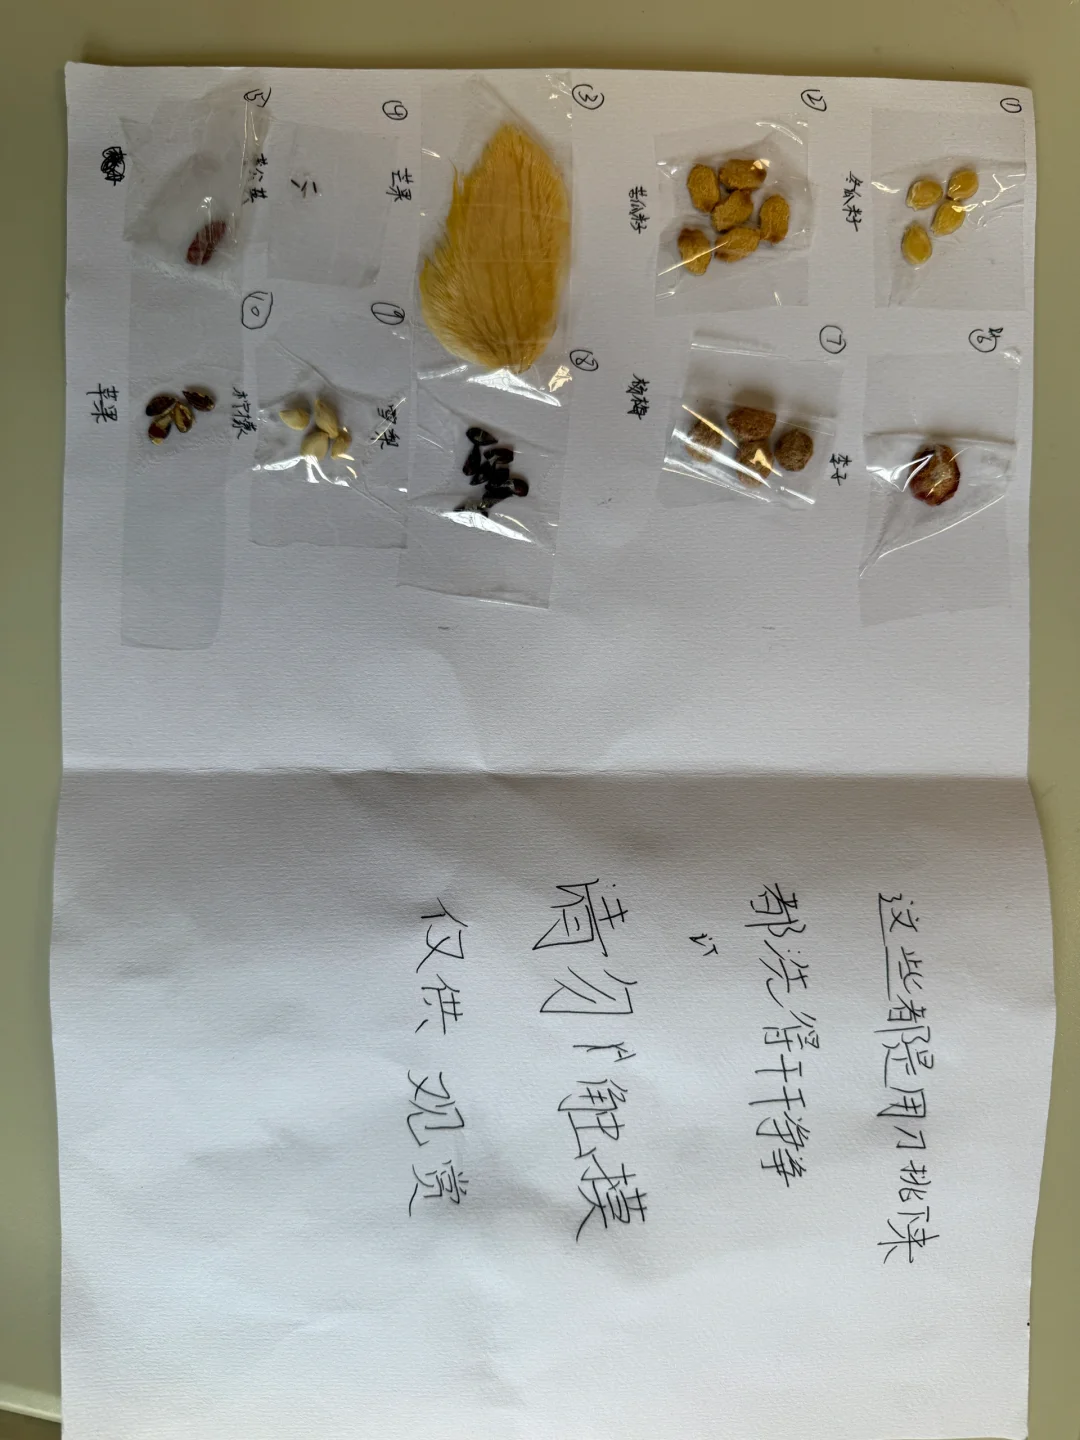 ①
冬瓜籽
②
苦瓜籽
③
芒果
④
⑤
⑥
李子
⑦
杨梅
⑧
雪梨
⑨
柠檬
⑩
苹果
这些都是用刀挑下来
都洗得干干净净
请勿触摸
仅供观赏